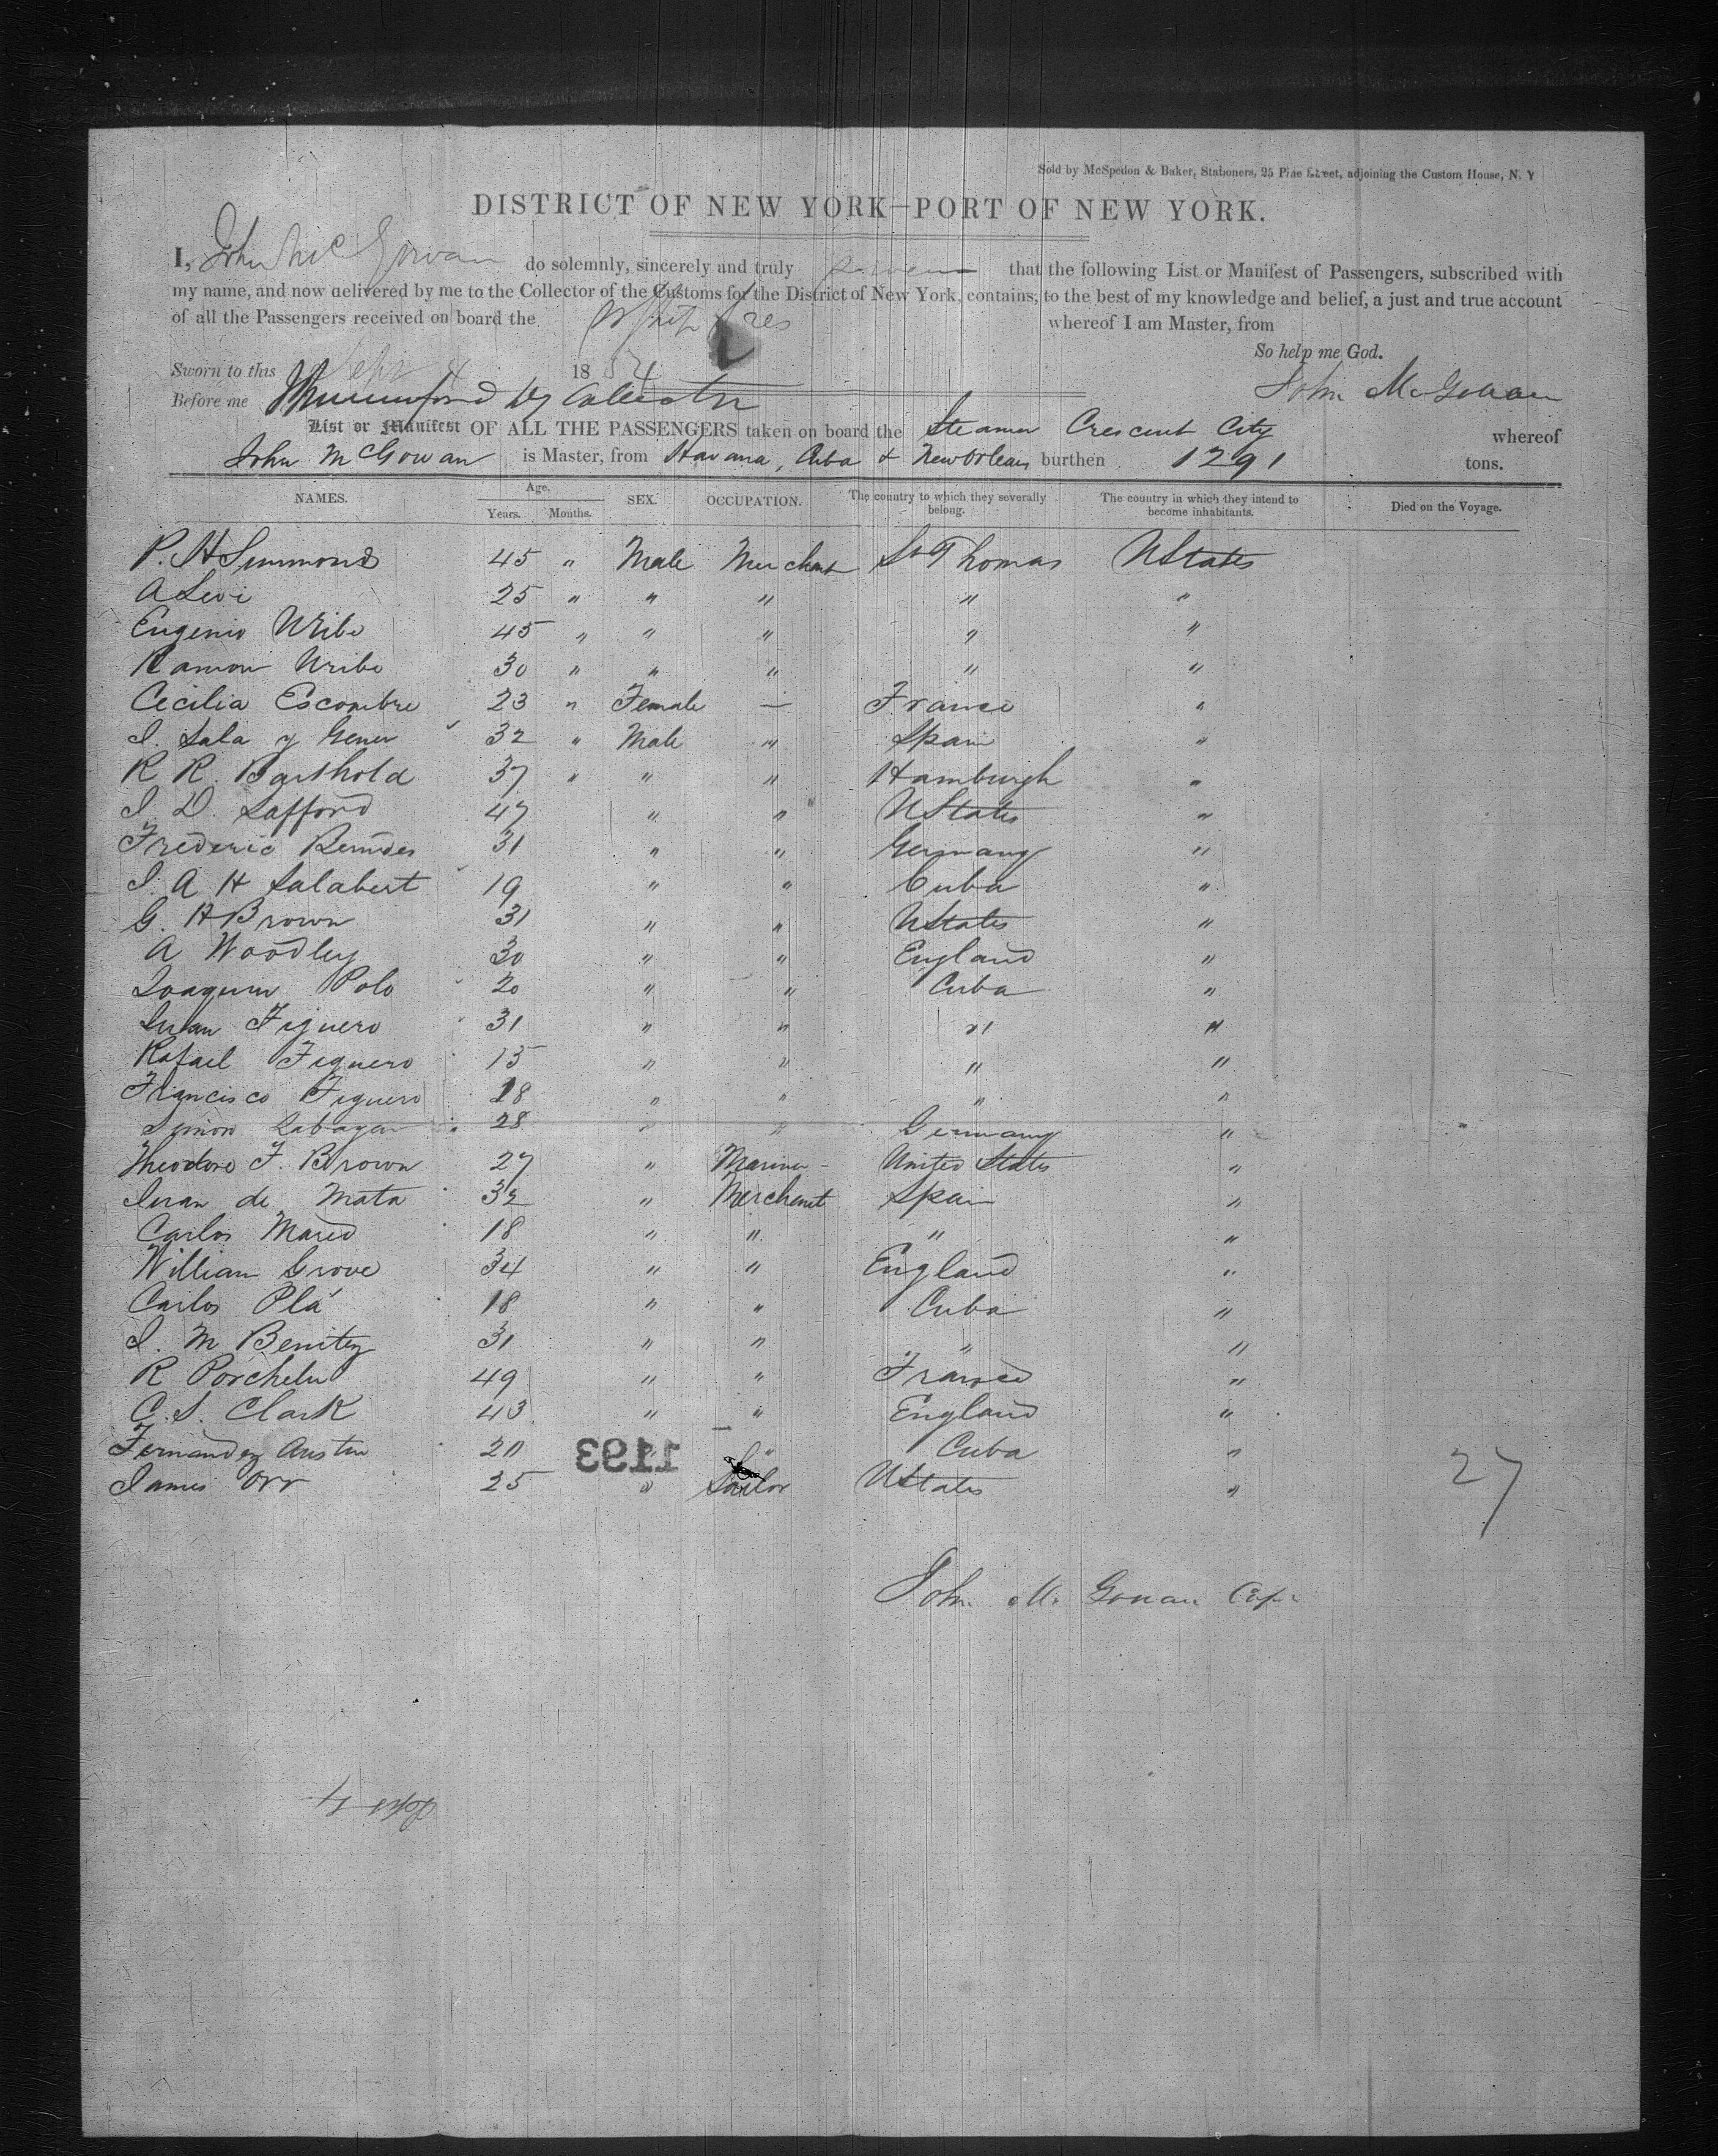 Sold by McSpedon & Baker, Stationers, 25 Pine Street, adjoining the Custom House, N. Y
DISTRICT OF NEW YORK—PORT OF NEW YORK.
I, John McGowan do solemnly, sincerely and truly that the following List or Manifest of Passengers, subscribed with
my name, and now delivered by me to the Collector of the Customs for the District of New York, contains, to the best of my knowledge and belief, a just and true account
of all the Passengers received on board the whereof I am Master, from
So help me God.
Sworn to this Sept 4 1854
John McGowan
Before me Dy Collector
List or Manifest OF ALL THE PASSENGERS taken on board the Steamer Crescent City whereof
John McGowan is Master, from Havana, Cuba & New Orleans burthen 1291 tons.
NAMES. Age. Years. Months. SEX. OCCUPATION. The country to which they severally belong. The country in which they intend to become inhabitants. Died on the Voyage.
P. H Simmonds 45 " Male Merchant St Thomas UStates
A Levi 25 " " " " "
Eugenio Uribe 45 " " " " "
Ramon Uribe 30 " " " " "
Cecilia Escombre 23 " Female — France "
I. Sala y Gener 32 " Male " Spain "
R R. Barthold 37 " " " Hamburgh "
I. D. Safford 47 " " UStates "
Frederic Bemdes 31 " " Germany "
I. A H Salabert 19 " " Cuba "
G. H Brown 31 " " UStates "
A Woodley 30 " " England "
Joaquin Polo 20 " " Cuba "
Juan Figuero 31 " " " "
Rafael Figuero 15 " " " "
Francisco Figuero 18 " " " "
Simon 28 " " Germany "
Theodore F. Brown 27 " Mariner United States "
Juan de Mata 32 " Merchant Spain "
Carlos 18 " " " "
William Grove 34 " " England "
Carlos Plá 18 " " Cuba "
I. M Benitez 31 " " " "
R 49 " " France "
C. S. Clark 43 " " England "
Fernandez Austin 20 " " Cuba "
1193
James Orr 25 " Sailor UStates "
27
John McGowan Capt